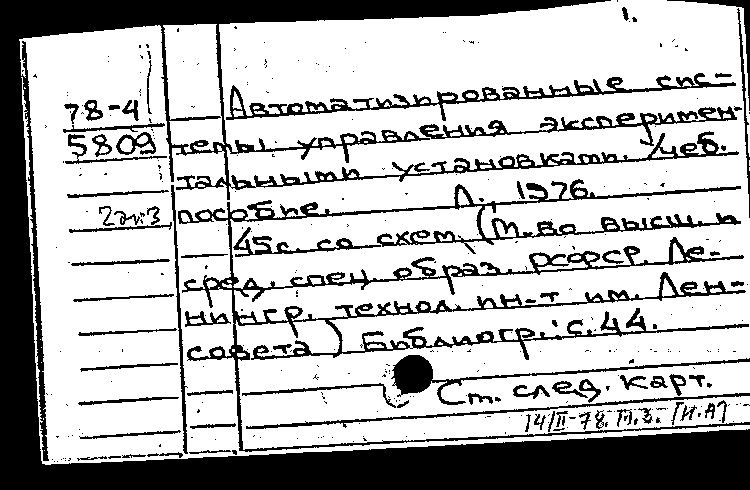 1.
78-4 Автоматизированные сис-
5809 темы управления эксперимен-
тальными установками. Учеб.
2 экз пособие. Л., 1976.
45с. со схем. (М.во высш. и
сред. спец. образ. РСФСР. Ле-
нингр. технол. ин-т им. Лен-
совета) Библиогр.: с. 44.
См. след. карт.
14/II-78. М.З. [И.А]